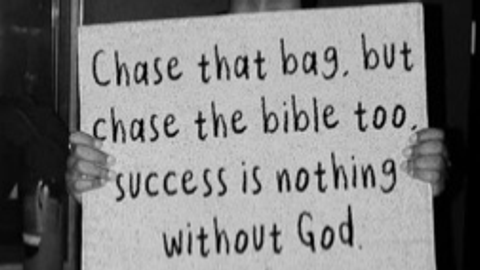 Chase that bag, but
chase the bible too.
success is nothing
without God.